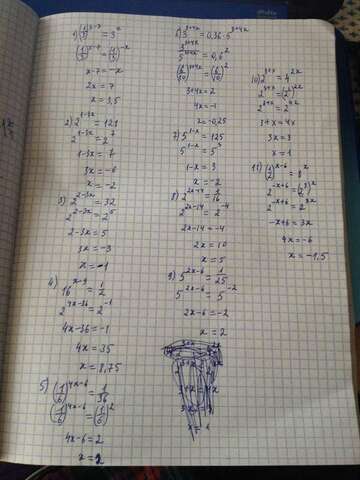 1) (1/3)^(x-7) = 3^x
(1/3)^(x-7) = (1/3)^(-x)
x-7 = -x
2x = 7
x = 3,5
2) 2^(1-3x) = 121
2^(1-3x) = 2^7
1-3x = 7
3x = -6
x = -2
3) 2^(2-3x) = 32
2^(2-3x) = 2^5
2-3x = 5
3x = -3
x = -1
4) 16^(x-9) = 1/2
2^(4x-36) = 2^(-1)
4x-36 = -1
4x = 35
x = 8,75
5) (1/6)^(4x-6) = 1/36
(1/6)^(4x-6) = (1/6)^2
4x-6 = 2
x = 2
6) 3^(3+4x) = 0,36·5^(3+4x)
= 0,6^2
(6/10)^(3+4x) = (6/10)^2
3+4x = 2
4x = -1
x = -0,25
7) 5^(1-x) = 125
5^(1-x) = 5^3
1-x = 3
x = -2
8) 2^(2x-14) = 1/16
2^(2x-14) = 2^(-4)
2x-14 = -4
2x = 10
x = 5
9) 5^(2x-6) = 1/25
5^(2x-6) = 5^(-2)
2x-6 = -2
x = 2
10) 2^(3+x) = 4^(2x)
2^(3+x) = (2^2)^(2x)
2^(3+x) = 2^(4x)
3+x = 4x
3x = 3
x = 1
11) (1/2)^(x-6) = 8^x
2^(-x+6) = (2^3)^x
2^(-x+6) = 2^(3x)
-x+6 = 3x
4x = -6
x = -1,5